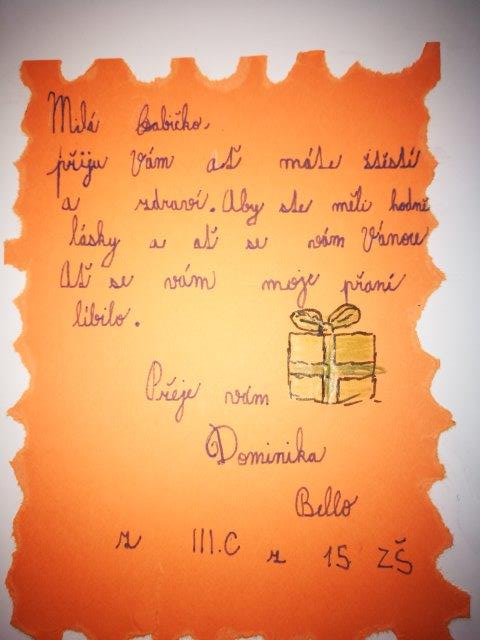 Milá babičko,
přiju Vám ať máte štěstí
a zdraví. Aby ste měli hodně
lásky a ať se vám Vánoce
Ať se vám moje přaní
libilo.
Přeje vám
Dominika
Bello
z III.C z 15 ZŠ